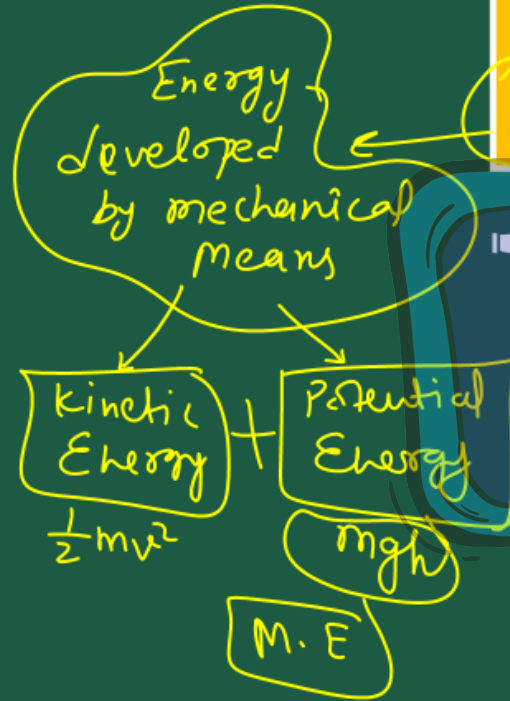 Energy
developed
by mechanical
Means
Kinetic + Potential
Energy Energy
½mv² mgh
M.E